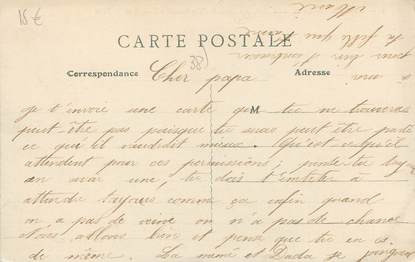 15 €
38
CARTE POSTALE
Correspondance
Adresse
Cher papa
je t'envoie une carte que tu ne trouveras
peut-être pas puisque tu seras peut être parti
ce qui vaudrait mieux. Qu'est ce qu'ils
attendent pour ces permissions;
en avoir une, tu dois t'embêter à
attendre toujours comme ça enfin quand
on a pas de veine on n'a pas de chance
Nous allons bien et pense que tu en es
de même. La mémé et Dada se
M
ta fille qui t'aime
Marie